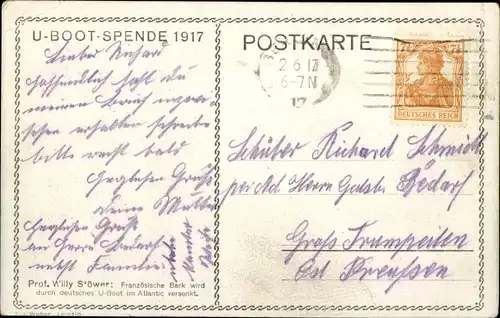 U-BOOT-SPENDE 1917
Lieber Richard
hoffendlich hast du
meinen Brief inzwi-
schen erhalten schreibe
bitte recht bald
Herzlichen Gruß
deine Mutter
Herzlichen Gruß
an Herrn Bedarf
nebst Familie
Prof. Willy Stöwer: Französische Bark wird
durch deutsches U-Boot im Atlantic versenkt.
POSTKARTE
2 6 17
6-7 N
7½ 7½
DEUTSCHES REICH
Schüler Richard Schmidt
bei Herrn Bedarf
Groß
Ost Preußen